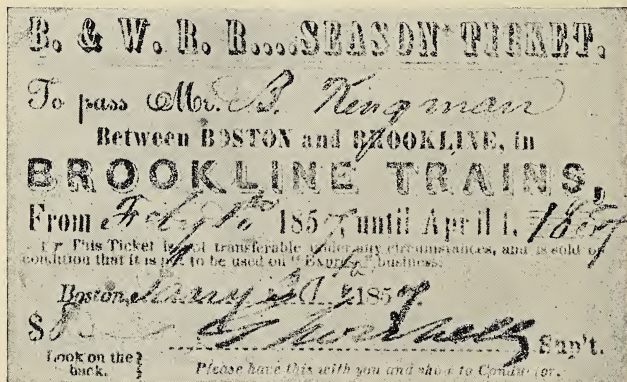 B. & W. R. R....SEASON TICKET.
To pass Mr. B. Kingman
Between BOSTON and BROOKLINE, in
BROOKLINE TRAINS,
From Feby 1st 1857 until April 1, 1857
This Ticket is not transferable under any circumstances, and is sold on
condition that it is not to be used on "Express" business.
Boston, 1857.
$8 Sup't.
Look on the back.
Please have this with you and show to Conductor.